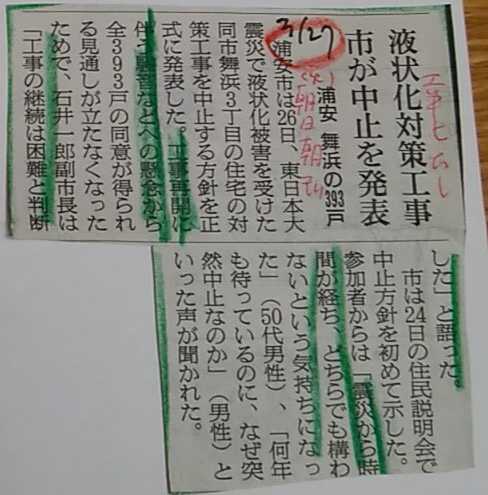 液状化対策工事
市が中止を発表
浦安 舞浜の393戸
3/27
朝日朝刊
浦安市は26日、東日本大
震災で液状化被害を受けた
同市舞浜3丁目の住宅の対
策工事を中止する方針を正
式に発表した。工事再開に
伴う騒音などへの懸念から
全393戸の同意が得られ
る見通しが立たなくなった
ためで、石井一郎副市長は
「工事の継続は困難と判断
した」と語った。
市は24日の住民説明会で
中止方針を初めて示した。
参加者からは「震災から時
間が経ち、どちらでも構わ
ないという気持ちになっ
た」（50代男性）、「何年
も待っているのに、なぜ突
然中止なのか」（男性）と
いった声が聞かれた。